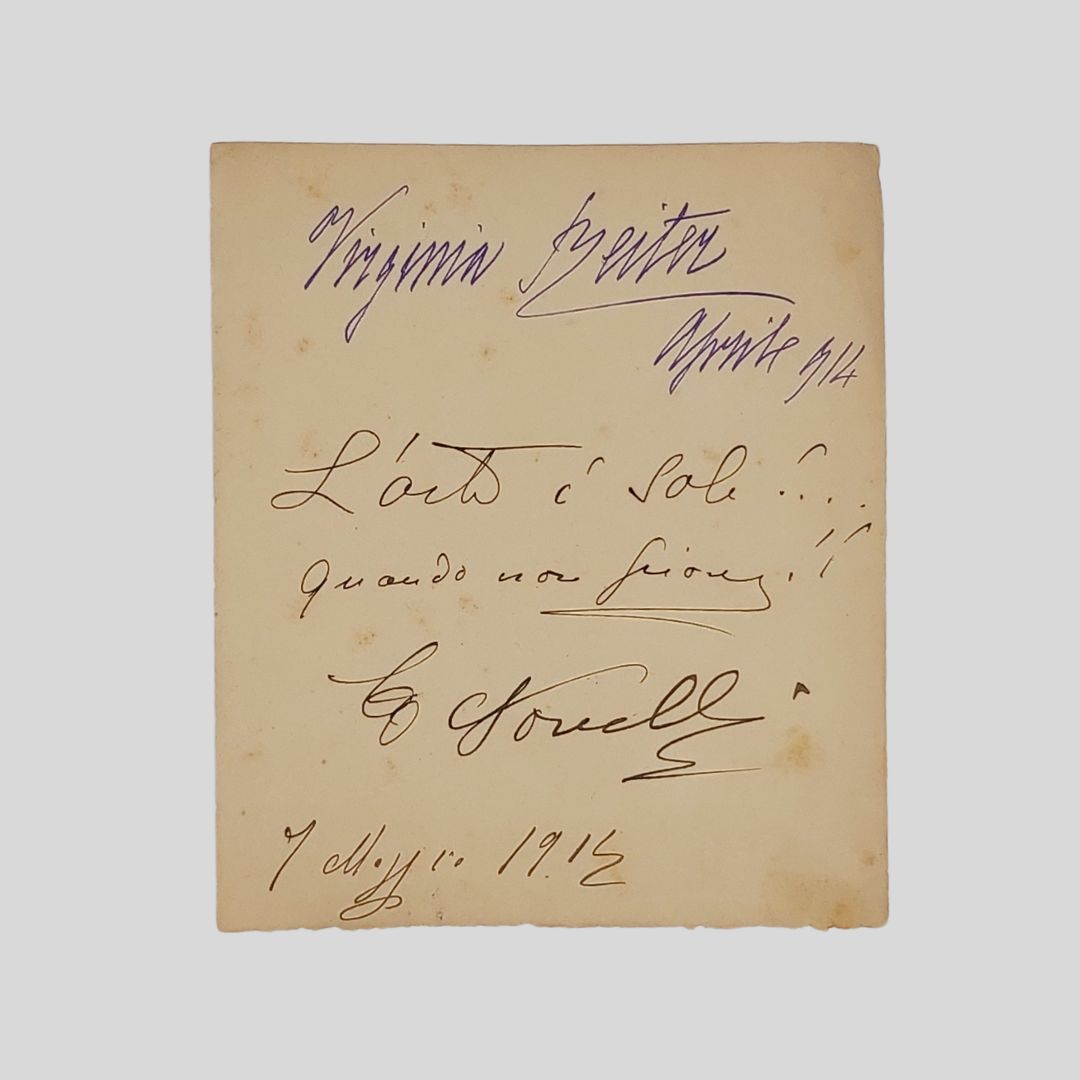 Virginia Reiter
Aprile 914
L'arte è sole!...
quando non piove!!
E Novelli
7 Maggio 1914